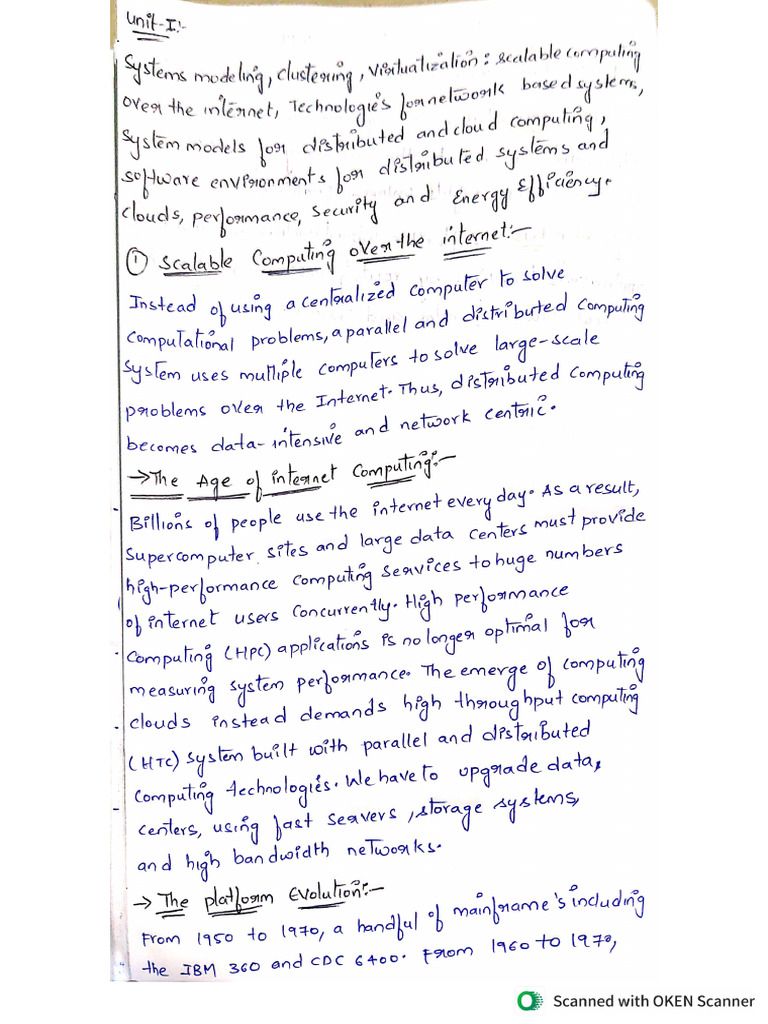 Unit-I:-
Systems modeling, clustering, virtualization: scalable computing
over the internet, Technologies for network based systems,
system models for distributed and cloud computing,
software environments for distributed systems and
clouds, performance, security and Energy Efficiency.
① Scalable Computing over the internet:-
Instead of using a centralized computer to solve
computational problems, a parallel and distributed computing
system uses multiple computers to solve large-scale
problems over the Internet. Thus, distributed computing
becomes data-intensive and network centric.
→ The Age of internet Computing:-
- Billions of people use the internet every day. As a result,
supercomputer sites and large data centers must provide
high-performance computing services to huge numbers
of internet users concurrently. High performance
computing (HPC) applications is no longer optimal for
measuring system performance. The emerge of computing
clouds instead demands high throughput computing
(HTC) system built with parallel and distributed
computing technologies. We have to upgrade data,
centers, using fast servers, storage systems,
and high bandwidth networks.
→ The platform Evolution:-
From 1950 to 1970, a handful of mainframe's including
the IBM 360 and CDC 6400. From 1960 to 1970,
Scanned with OKEN Scanner